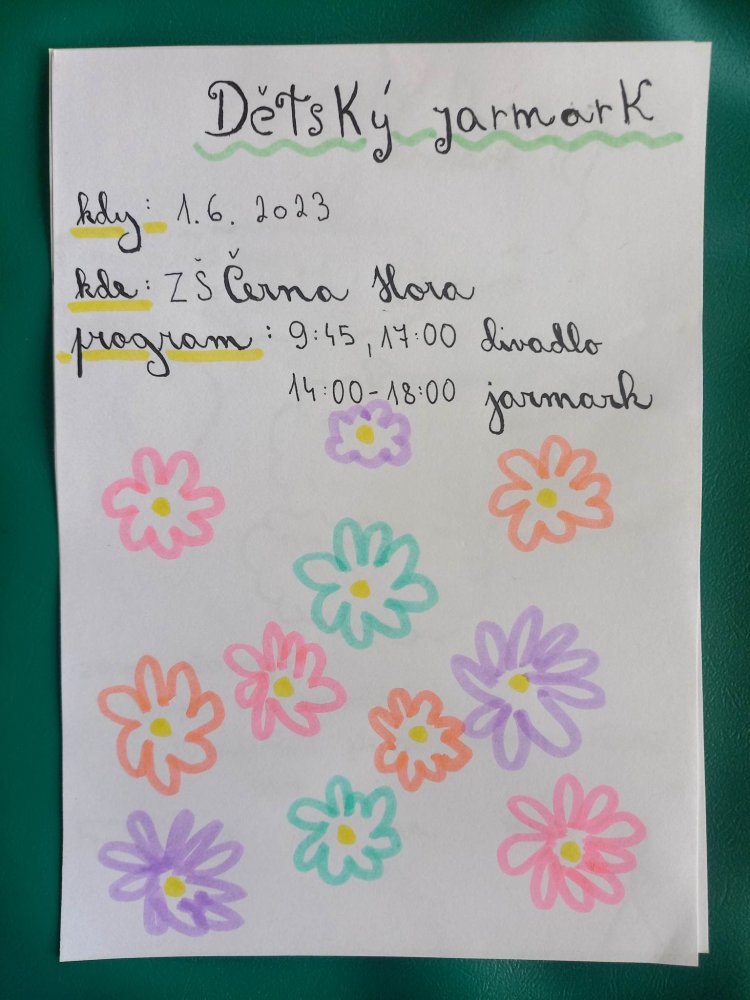 Dětský jarmark
kdy: 1.6. 2023
kde: ZŠ Černa Hora
program: 9:45, 17:00 divadlo
14:00-18:00 jarmark